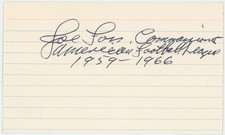 Joe Foss, Commissioner
American Football League
1959-1966